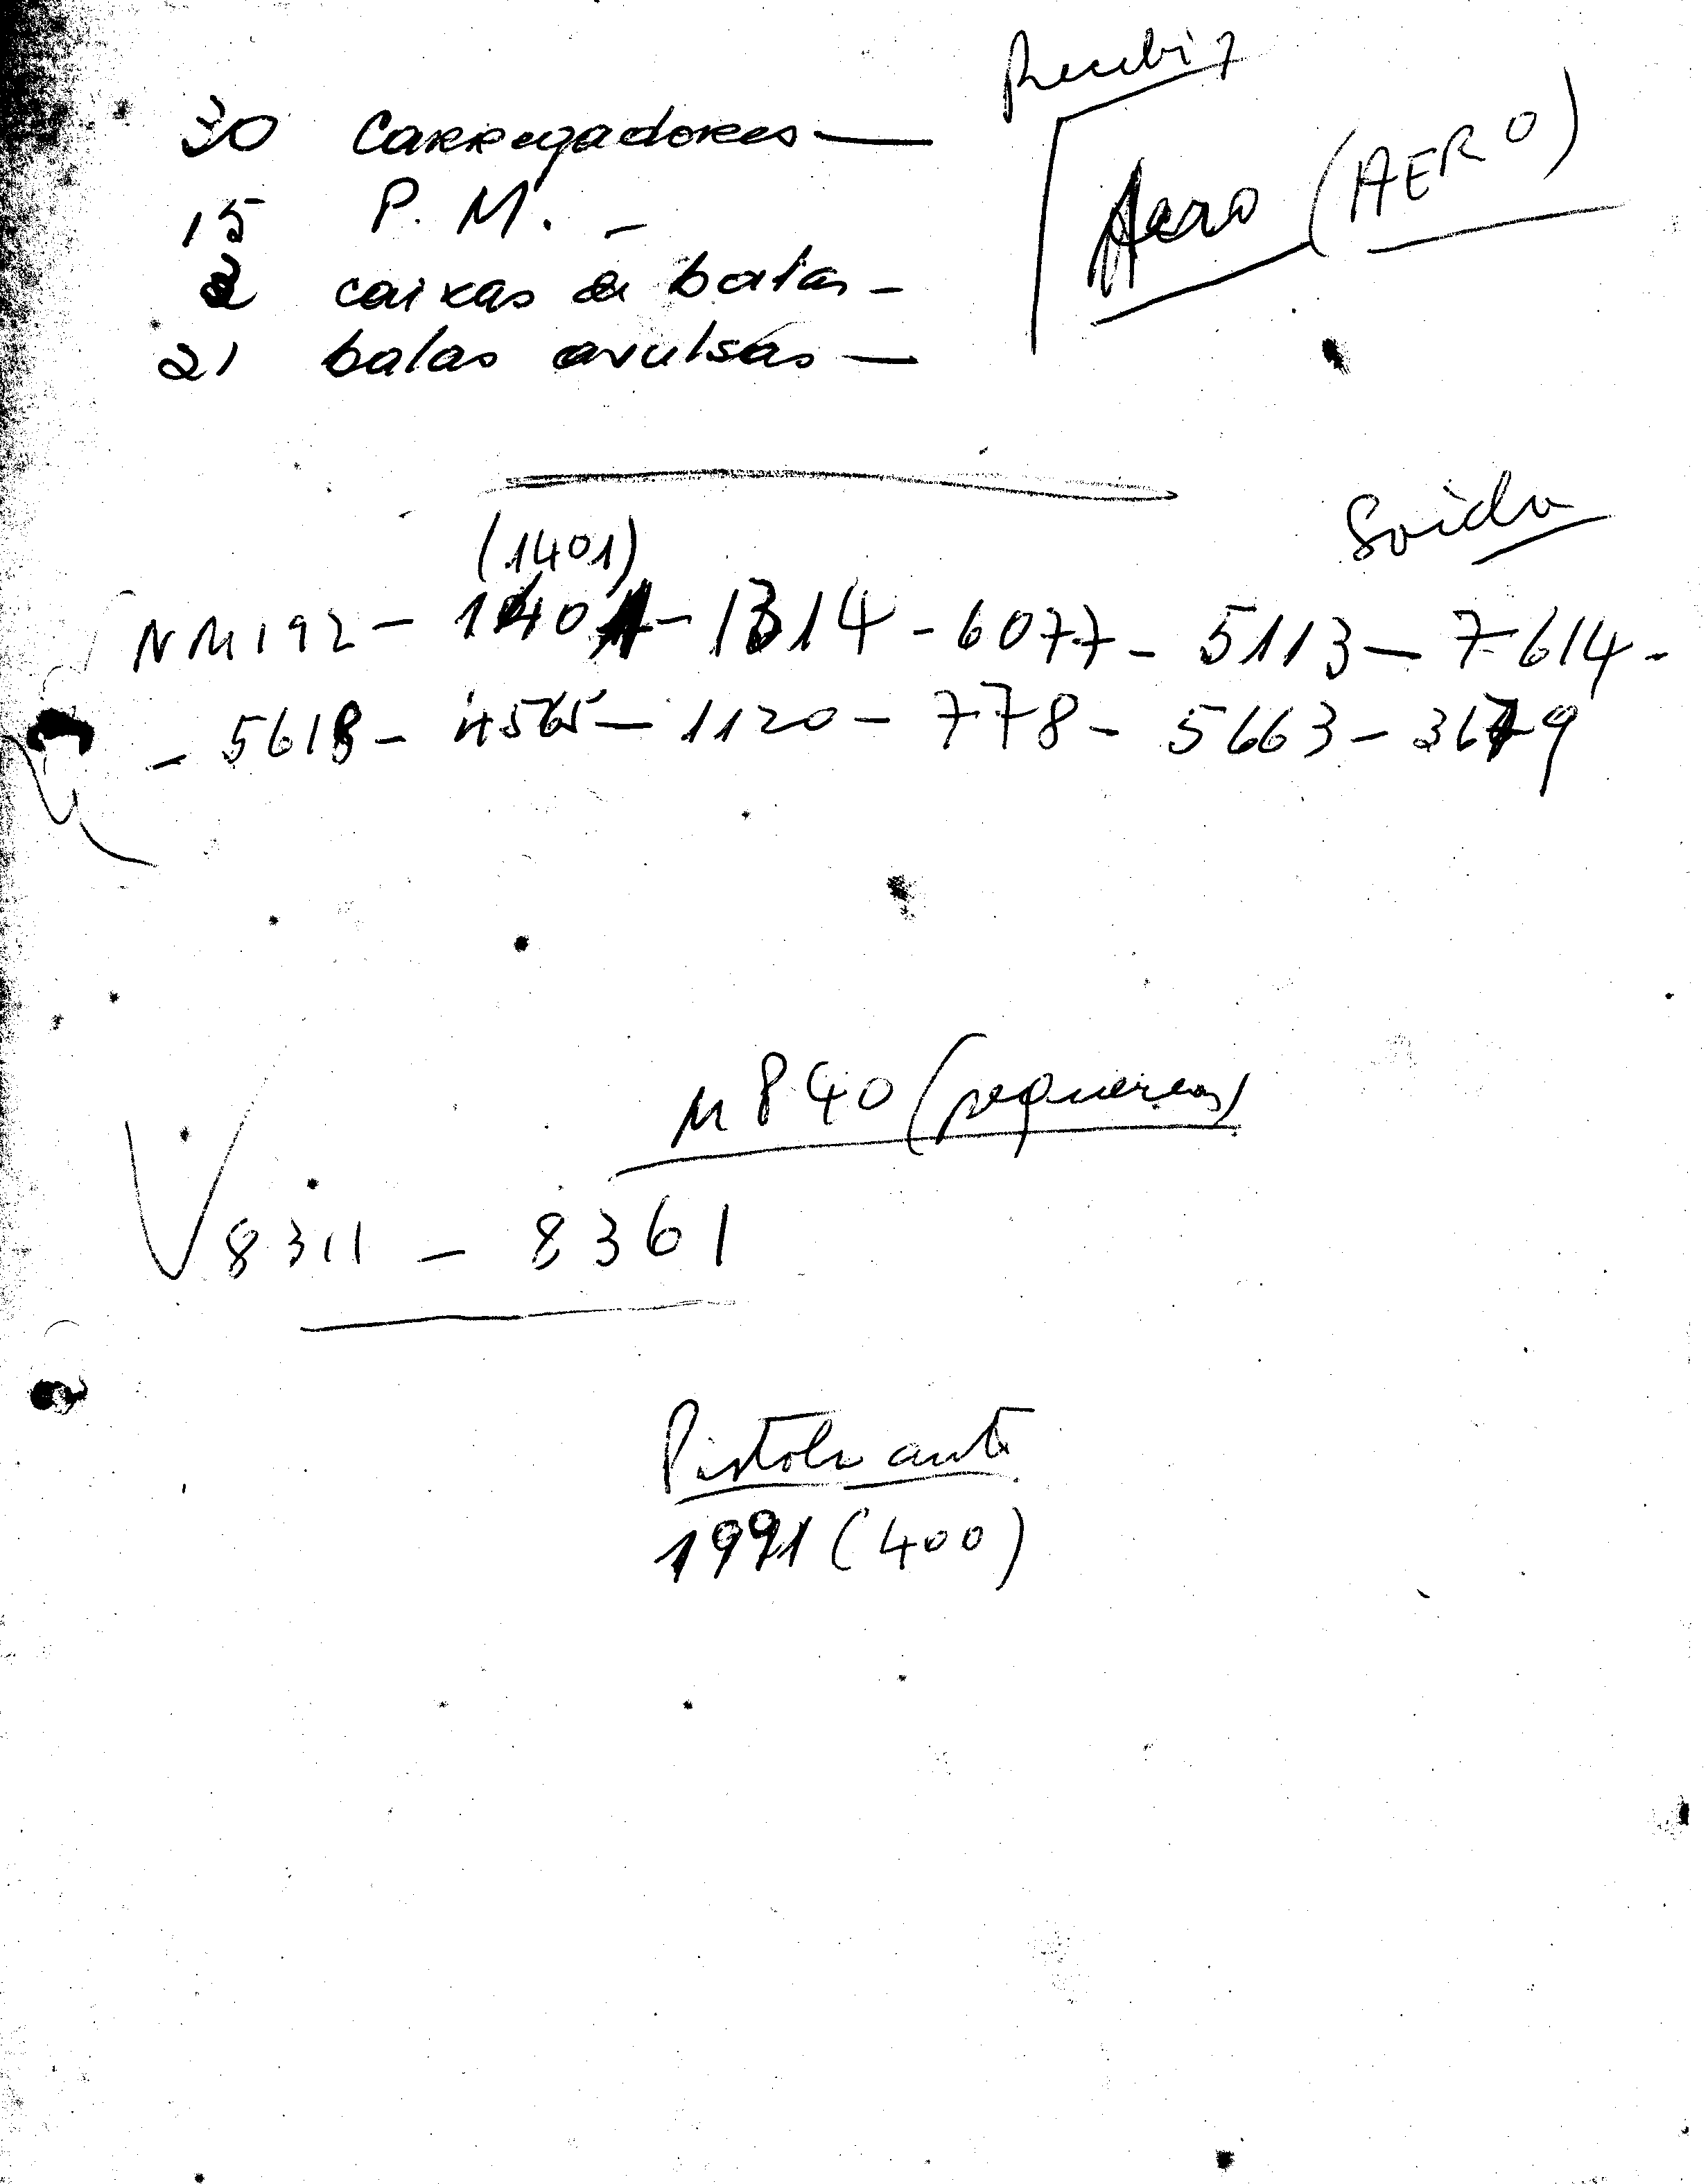 Recebi 7
30 Carregadores —
Aero (AERO)
15 P. M. –
2 caixas de balas –
21 balas avulsas —
Saida
(1401)
NM192 – 1401 – 1314 – 6077 – 5113 – 7614 –
– 5618 – 4565 – 1120 – 778 – 5663 – 3679
M 840 (pequenas)
8311 – 8361
Pistola aut
1991 (400)